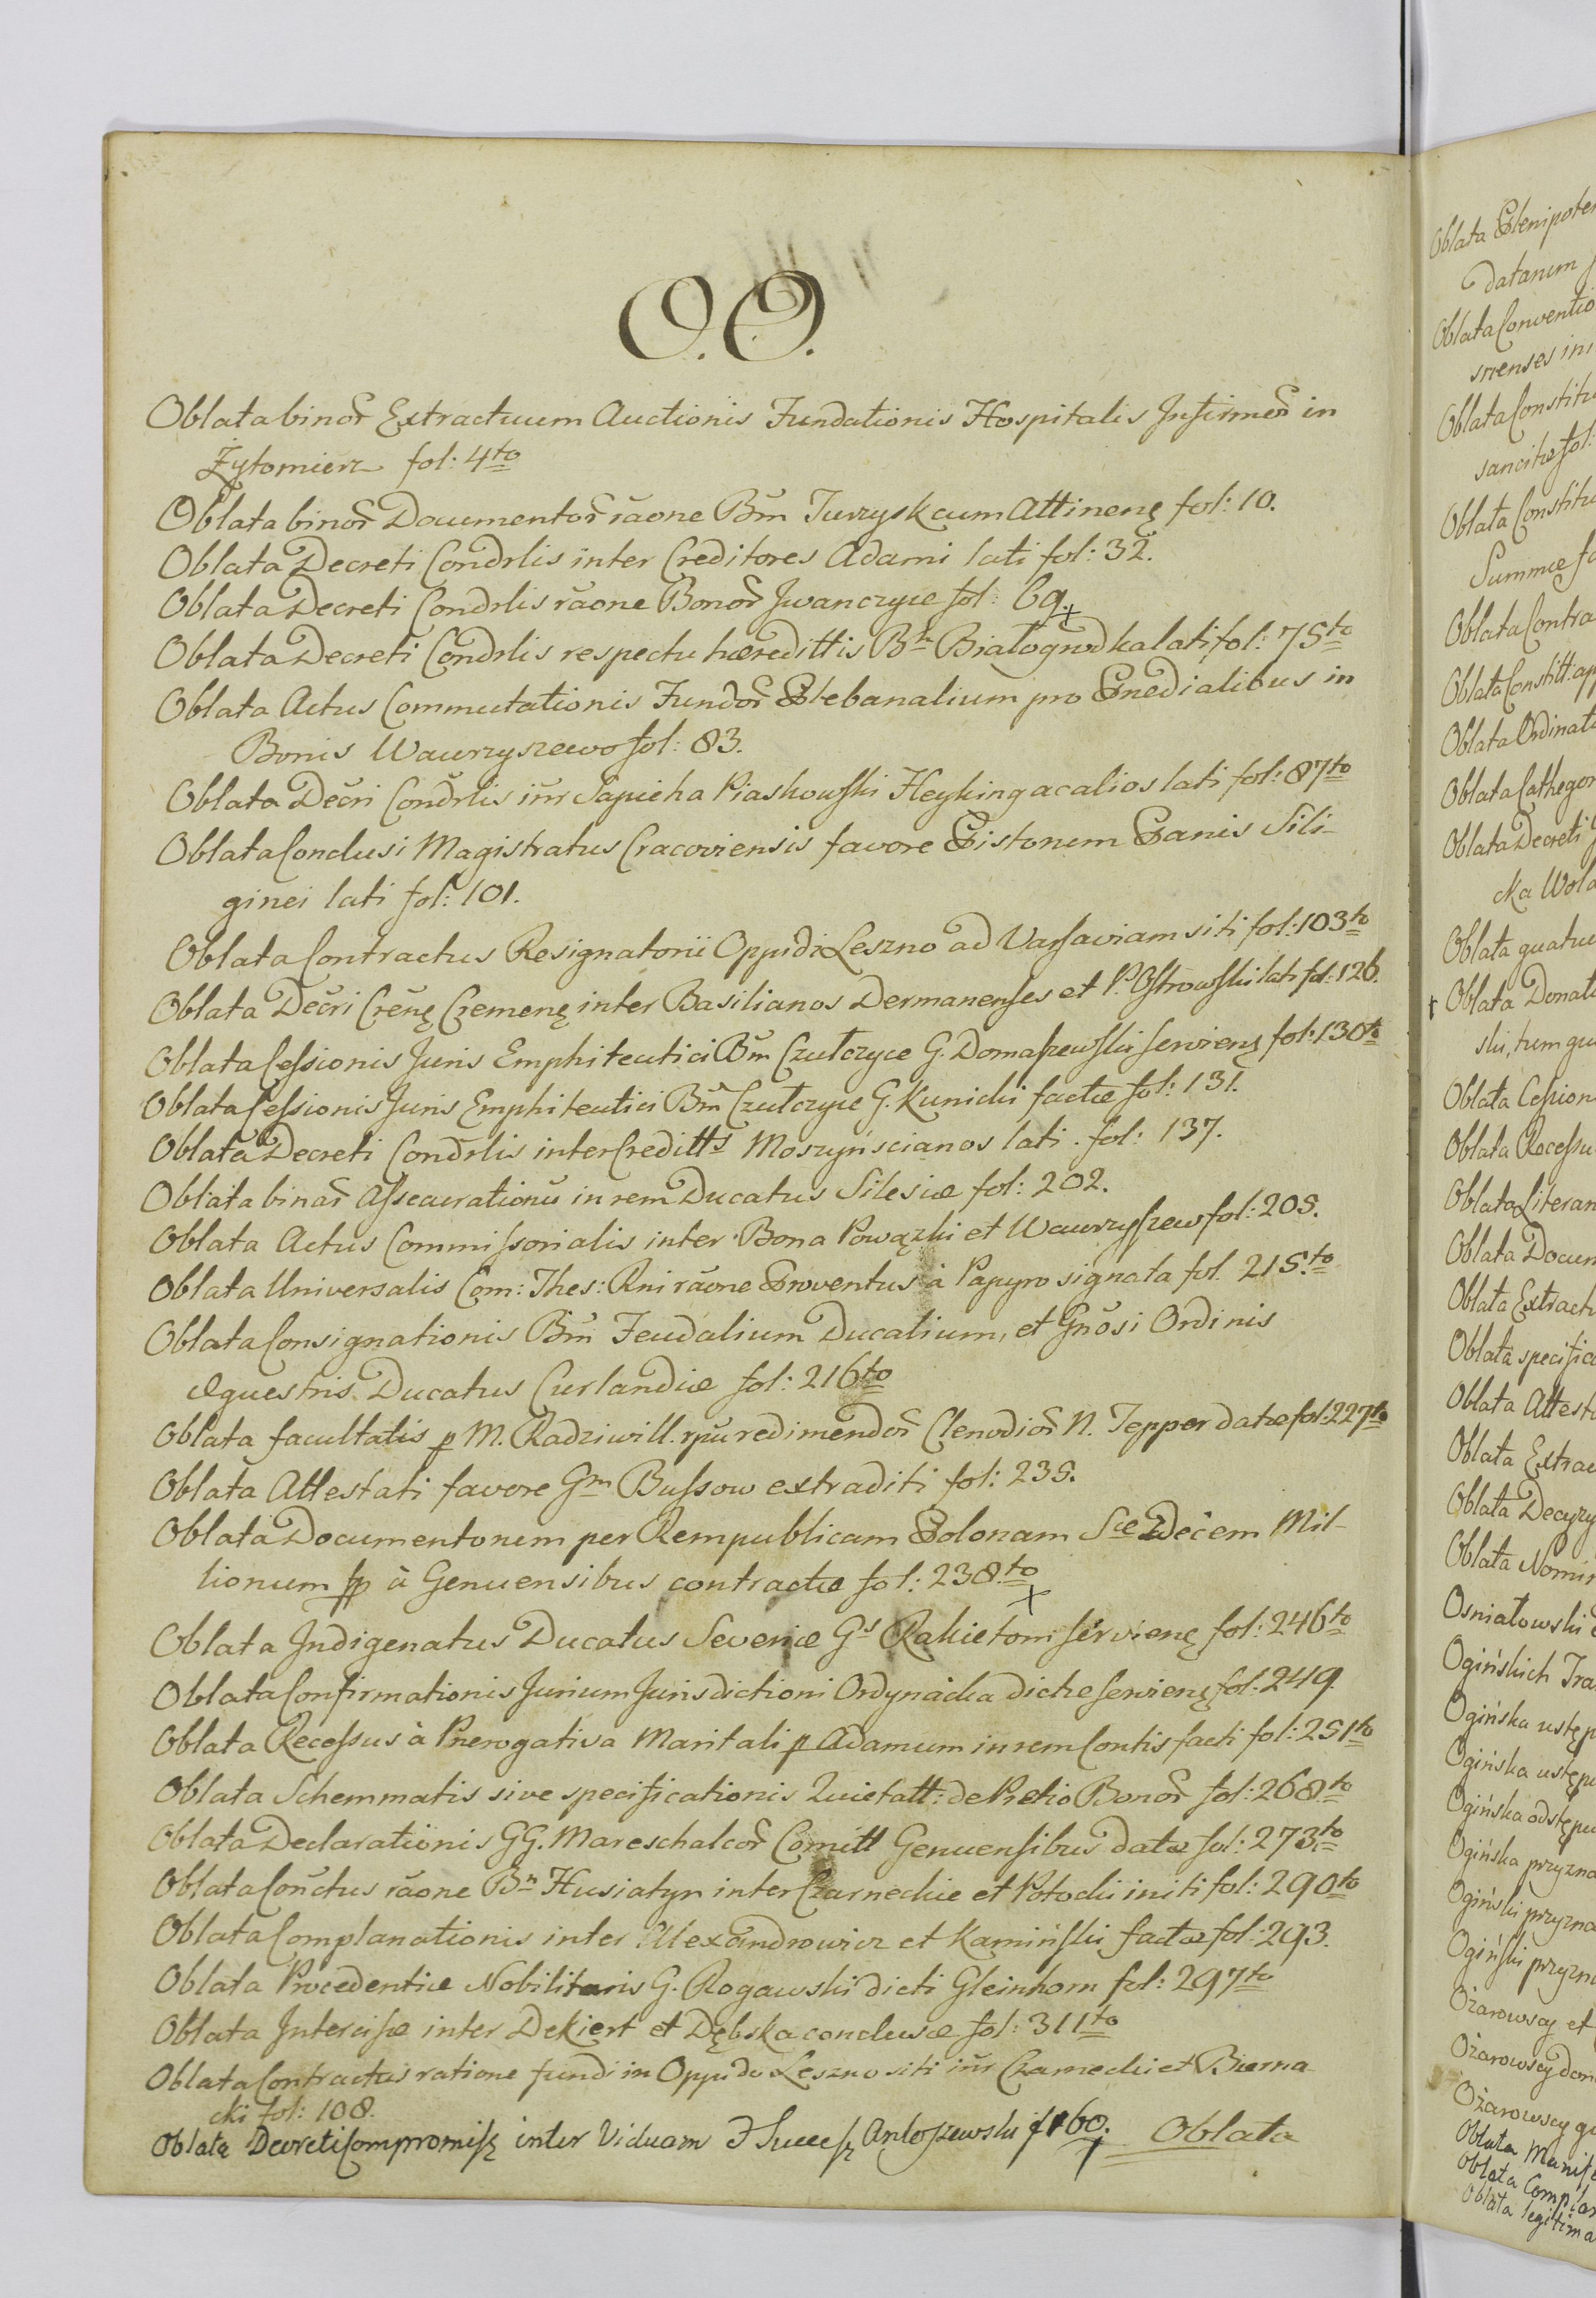 O. O.
Oblata binor̃ Extractuum Auctionis Fundationis Hospitalis Infirmor̃ in
Żytomierz fol: 4to
Oblata binor̃ Documentor̃ rãone Bm̃ Turzysk cum Attinenç fol: 10.
Oblata Decreti Condrlis inter Creditores Adami lati fol: 32.
Oblata Decreti Condrlis rãone Bonor̃ Iwanczyce fol: 69.
Oblata Decreti Condrlis respectu hæredittis Bn Białogrodka lati, fol: 75to
Oblata Actus Commutationis Fundor̃ Plebanalium pro Prædialibus in
Bonis Wawrzyszewo fol: 83.
Oblata Decři Condrlis int̃r Sapieha Piaskowski Heyking ac alios lati fol: 87to
Oblata Conclusi Magistratus Cracoviensis favore Pistorum Panis Sili-
ginei lati fol: 101.
Oblata Contractus Resignatorii Oppidi Leszno ad Varsaviam siti fol: 103to
Oblata Decři Crenç Cremenç inter Basilianos Dermanenses et P. Ostrowski lati fol: 126.
Oblata Cessionis Juris Emphiteutici Bm̃ Czułczyce G. Domaszewski servienç fol: 130to
Oblata Cessionis Juris Emphiteutici Bm̃ Czułczyce G. Kunicki factæ fol: 131.
Oblata Decreti Condrlis inter Creditts Moszyńscianos lati. fol: 137.
Oblata binar̃ Assecurationũ in rem Ducatus Silesiæ fol: 202.
Oblata Actus Commissorialis inter Bona Powązki et Wawrzyszew fol: 205.
Oblata Universalis Com: Thes: Rni rãone Proventus à Papyro signata fol. 215.to
Oblata Consignationis Bm̃ Feudalium Ducalium, et Gñosi Ordinis
Equestris Ducatus Curlandiæ fol: 216to
Oblata facultatis p M. Radziwill. rpũ redimendor̃ Clenodior̃ N. Tepper datæ fol: 227to
Oblata Attestati favore Gm Bussow extraditi fol: 235.
Oblata Documentorum per Rempublicam Polonam Sæ Decem Mil-
lionum fp à Genuensibus contractæ fol: 238.to
Oblata Indigenatus Ducatus Severiæ Gs Rakietom servienç fol: 246to
Oblata Confirmationis Jurium Jurisdictioni Ordynacka dictæ servienç fol: 249.
Oblata Recessus à Prerogativa Maritali p Adamum in rem Contis facti fol: 251to
Oblata Schemmatis sive specificationis Quietatt: de Pretio Bonor̃ fol: 268.to
Oblata Declarationis GG. Mareschalcor̃ Comitt Genuensibus datæ fol: 273.to
Oblata Con̄ctus rãone Bn Husiatyn inter Czarneckie et Potocki initi fol: 290to
Oblata Complanationis inter Alexandrowicz et Kamiński factæ fol: 293.
Oblata Procedentiæ Nobilitaris G. Rogawski dicti Gleinhorn fol: 297to
Oblata Intercisæ inter Dekiert et Dębska conclusæ fol: 311to
Oblata Contractus ratione fundi in Oppido Leszno siti int̃r Czarnecki et Bierna
cki fol: 108.
Oblata Decreti Compromisş inter Viduam & Success Antoszewski f 160.
Oblata
Oblata
datarum
Oblata Conventio
Oblata Constitu
sancitæ fol:
Oblata Constitu
Summæ fo
Oblata Contra
Oblata Constitt: ap
Oblata Ordinat
Oblata Cathegor
Oblata Decreti
cka Wola
Oblata quatu
Oblata Donat
ski, tum
Oblata Cession
Oblata Recessu
Oblata Literar
Oblata Docum
Oblata Extract
Oblata specific
Oblata Attest
Oblata Extrac
Oblata Decyzy
Oblata Nomin
Osniałowski
Ogińskich Tra
Ogińska ustęp
Ogińska ustępu
Ogińska odstępu
Ogińska przyzna
Ogiński przyzna
Ogiński przyzn
Ożarowscy et
Ożarowscy
Ożarowscy
Oblata Manif
Oblata Complan
Oblata legitima